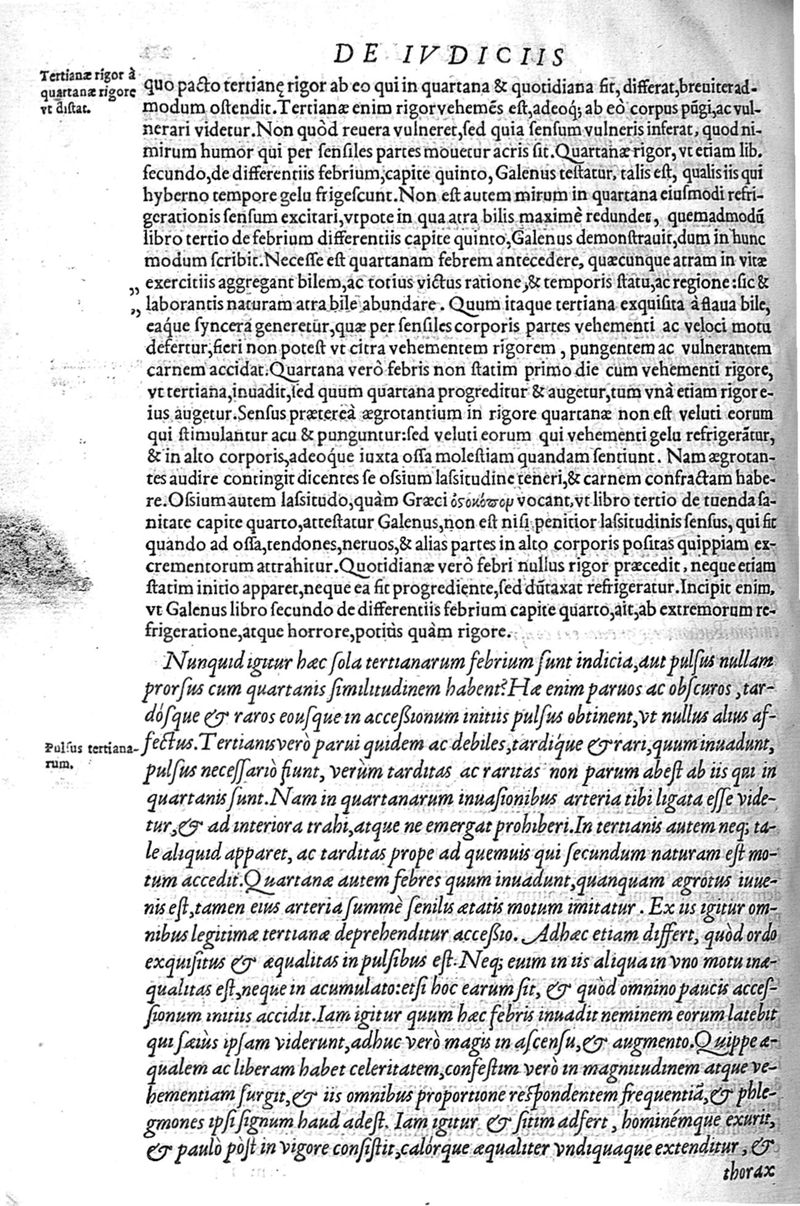 DE IVDICIIS
Tertianæ rigor à
quartanæ rigore
vt distat.
quo pacto tertianę rigor ab eo qui in quartana & quotidiana fit, differat, breuiter ad-
modum ostendit. Tertianæ enim rigor vehemẽs est, adeoq; ab eò corpus pũgi, ac vul-
nerari videtur. Non quòd reuera vulneret, sed quia sensum vulneris inferat, quod ni-
mirum humor qui per sensiles partes mouetur acris sit. Quartanæ rigor, vt etiam lib.
secundo, de differentiis febrium, capite quinto, Galenus testatur, talis est, qualis iis qui
hyberno tempore gelu frigescunt. Non est autem mirum in quartana eiusmodi refri-
gerationis sensum excitari, vtpote in qua atra bilis maximè redundet, quemadmodũ
libro tertio de febrium differentiis capite quinto, Galenus demonstrauit, dum in hunc
modum scribit. Necesse est quartanam febrem antecedere, quæcunque atram in vitæ
„ exercitiis aggregant bilem, ac totius victus ratione, & temporis statu, ac regione: sic &
„ laborantis naturam atra bile abundare. Quum itaque tertiana exquisita à flaua bile,
eaq́ue syncera generetur, quæ per sensiles corporis partes vehementi ac veloci motu
defertur, fieri non potest vt citra vehementem rigorem, pungentem ac vulnerantem
carnem accidat. Quartana verò febris non statim primo die cum vehementi rigore,
vt tertiana, inuadit, sed quum quartana progreditur & augetur, tum vnà etiam rigor e-
ius augetur. Sensus prætereà ægrotantium in rigore quartanæ non est veluti eorum
qui stimulantur acu & punguntur: sed veluti eorum qui vehementi gelu refrigerãtur,
& in alto corporis, adeoque iuxta ossa molestiam quandam sentiunt. Nam ægrotan-
tes audire contingit dicentes se ossium lassitudine teneri, & carnem confractam habe-
re. Ossium autem lassitudo, quàm Græci ὀσοκόπομ vocant, vt libro tertio de tuenda sa-
nitate capite quarto, attestatur Galenus, non est nisi penitior lassitudinis sensus, qui fit
quando ad ossa, tendones, neruos, & alias partes in alto corporis positas quippiam ex-
crementorum attrahitur. Quotidianæ verò febri nullus rigor præcedit, neque etiam
statim initio apparet, neque ea fit progrediente, sed dũtaxat refrigeratur. Incipit enim,
vt Galenus libro secundo de differentiis febrium capite quarto, ait, ab extremorum re-
frigeratione, atque horrore, potiùs quàm rigore.
Nunquid igitur hæc sola tertianarum febrium sunt indicia, aut pulsus nullam
prorsus cum quartanis similitudinem habent? Hæ enim paruos ac obscuros, tar-
dósque & raros eousque in accessionum initiis pulsus obtinent, vt nullus alius af-
Pulsus tertiana-
rum.
fectus. Tertianis verò parui quidem ac debiles, tardiq́ue & rari, quum inuadunt,
pulsus necessariò fiunt, verùm tarditas ac raritas non parum abest ab iis qui in
quartanis sunt. Nam in quartanarum inuasionibus arteria tibi ligata esse vide-
tur, & ad interiora trahi, atque ne emergat prohiberi. In tertianis autem neq; ta-
le aliquid apparet, ac tarditas prope ad quemuis qui secundum naturam est mo-
tum accedit. Quartanæ autem febres quum inuadunt, quanquam ægrotus iuue-
nis est, tamen eius arteria summè senilis ætatis motum imitatur. Ex iis igitur om-
nibus legitimæ tertianæ deprehenditur accessio. Adhæc etiam differt, quòd ordo
exquisitus & æqualitas in pulsibus est. Neq; euim in iis aliqua in vno motu inæ-
qualitas est, neque in acumulato: etsi hoc earum sit, & quòd omnino paucis acces-
sionum initiis accidit. Iam igitur quum hæc febris inuadit neminem eorum latebit
qui sæiùs ipsam viderunt, adhuc verò magis in ascensu, & augmento. Quippe æ-
qualem ac liberam habet celeritatem, confestim verò in magnitudinem atque ve-
hementiam surgit, & iis omnibus proportione respondentem frequentiã, & phle-
gmones ipsi signum haud adest. Iam igitur & sitim adfert, hominémque exurit,
& paulò pòst in vigore consistit, calórque æqualiter vndiquaque extenditur, &
thorax